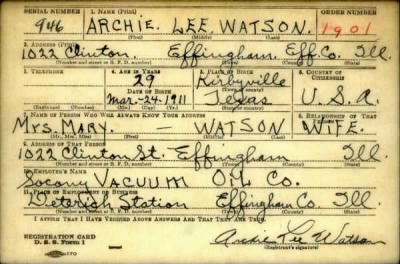 SERIAL NUMBER 1. NAME (Print) ORDER NUMBER
946 ARCHIE. LEE WATSON. 1901
(First) (Middle) (Last)
2. ADDRESS (Print)
1022 Clinton. Effingham. Eff. Co. Ill.
(Number and street or R. F. D. number) (Town) (County) (State)
3. TELEPHONE 4. AGE IN YEARS 5. PLACE OF BIRTH 6. COUNTRY OF CITIZENSHIP
29 Kirbyville
DATE OF BIRTH (Town or county)
Mar-24-1911 Texas U.S.A
(Exchange) (No.) (Mo.) (Day) (Yr.) (State or country)
7. NAME OF PERSON WHO WILL ALWAYS KNOW YOUR ADDRESS 8. RELATIONSHIP OF THAT PERSON
Mrs. MARY. — WATSON WIFE.
(Mr., Mrs., Miss) (First) (Middle) (Last)
9. ADDRESS OF THAT PERSON
1022 Clinton St. Effingham Ill.
(Number and street or R. F. D. number) (Town) (County) (State)
10. EMPLOYER'S NAME
Socony VACUUM OIL Co.
11. PLACE OF EMPLOYMENT OR BUSINESS
Deterich Station Effingham Co. Ill.
(Number and street or R. F. D. number) (Town) (County) (State)
I AFFIRM THAT I HAVE VERIFIED ABOVE ANSWERS AND THAT THEY ARE TRUE.
REGISTRATION CARD
D. S. S. Form 1 Archie Lee Watson
(Registrant's signature)